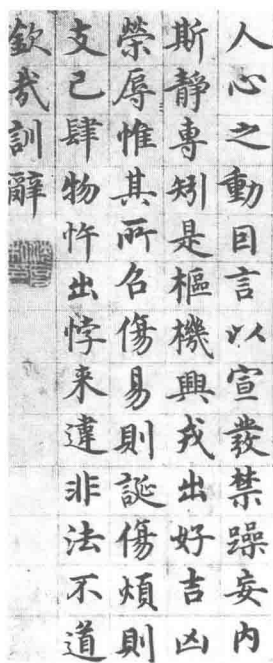 人心之動因言以宣發禁躁妄內
斯靜專矧是樞機興戎出好吉凶
榮辱惟其所召傷易則誕傷煩則
支己肆物忤出悖来違非法不道
欽哉訓辭